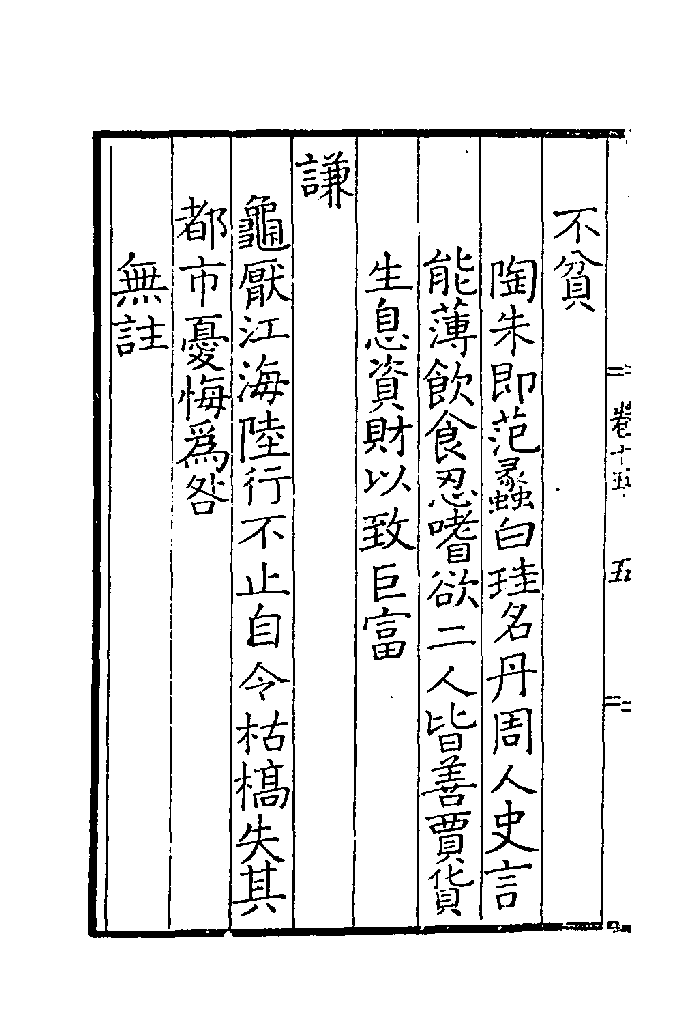 卷十五
五
不貧
陶朱即范蠡白珪名丹周人史言
能薄飲食忍嗜欲二人皆善賈貨
生息資財以致巨富
謙
龜厭江海陸行不止自令枯槁失其
都市憂悔爲咎
無註